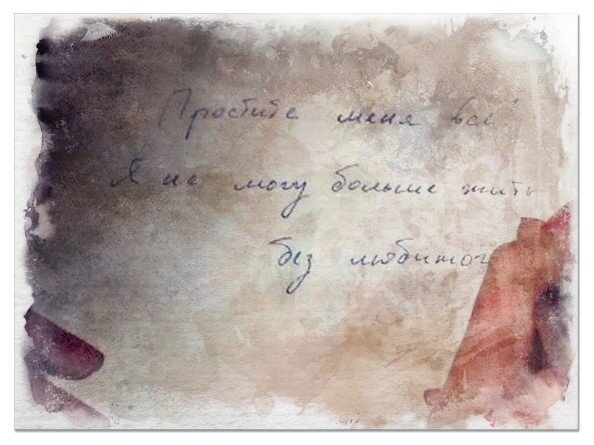 Простите меня все!
Я не могу больше жить
без любимого